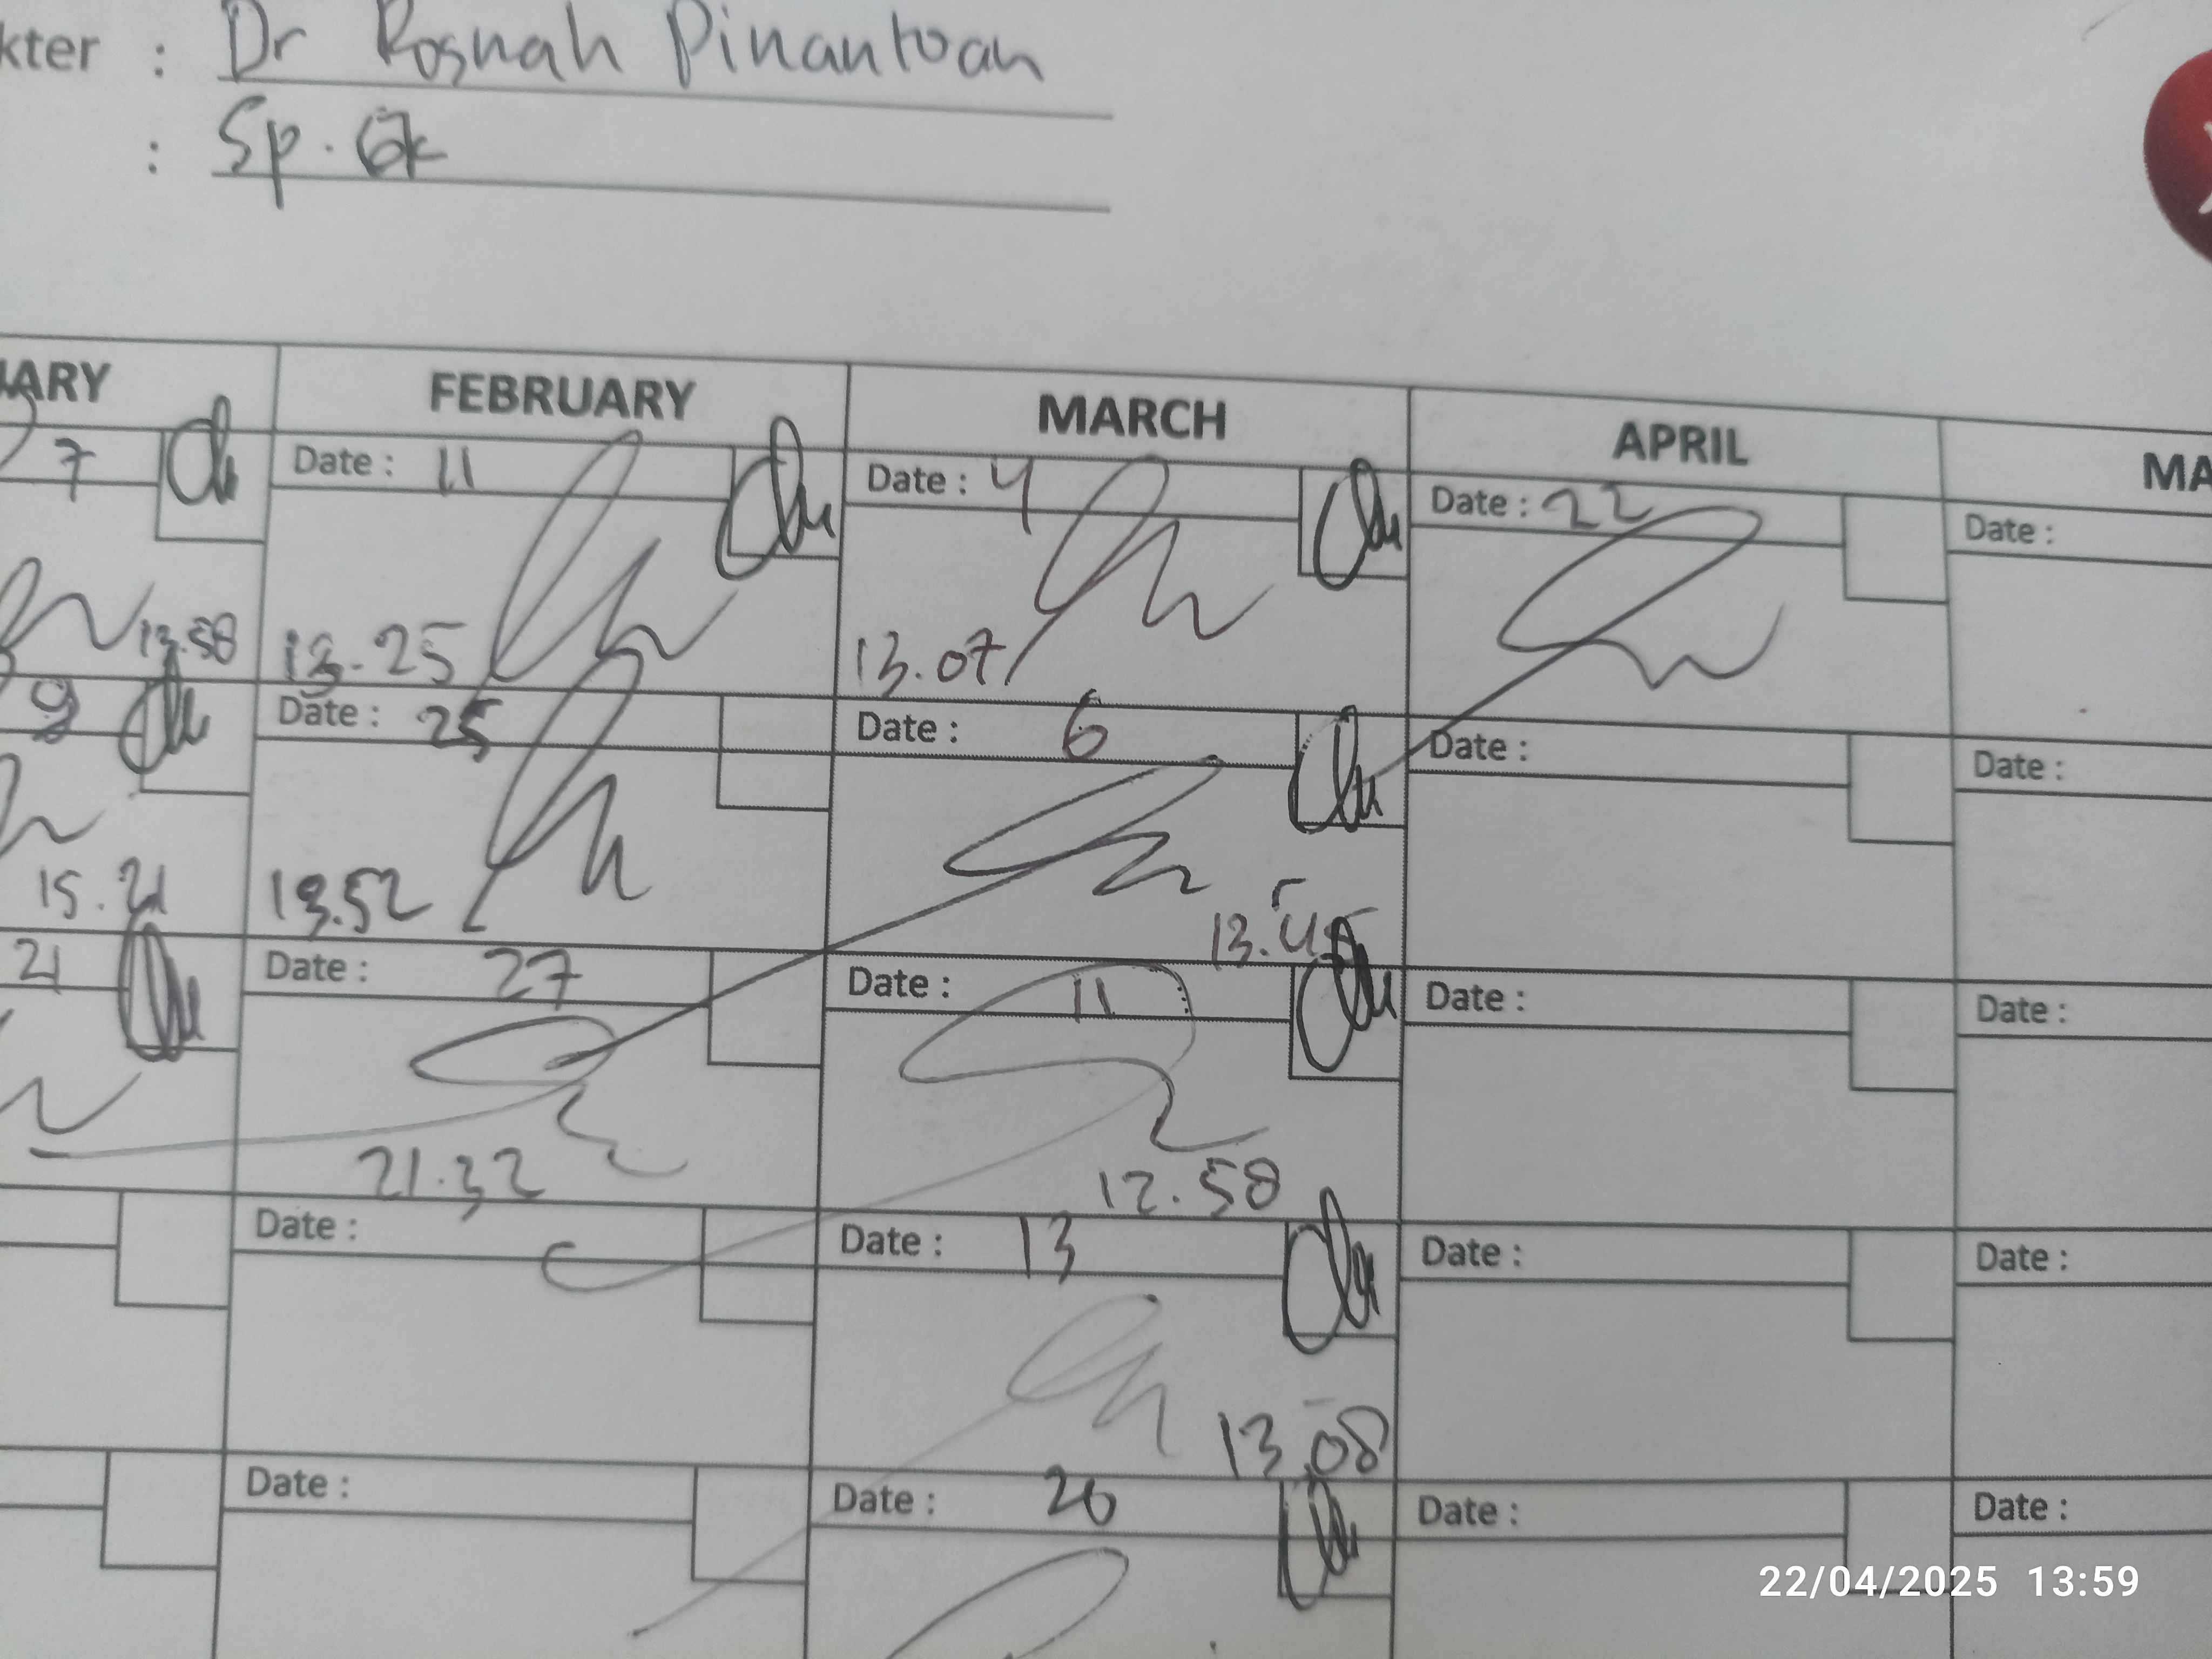 kter : Dr Rosnah Pinantoan
: Sp. GK
UARY FEBRUARY MARCH APRIL MA
7 Date : 11 Date : 4 Date : 22 Date :
13.58 13.25 13.07
9 Date : 25 Date : 6 Date : Date :
15.21 13.52 13.45
21 Date : 27 Date : 11 Date : Date :
21.32 12.58
Date : Date : 13 Date : Date :
13.08
Date : Date : 20 Date : Date :
22/04/2025 13:59